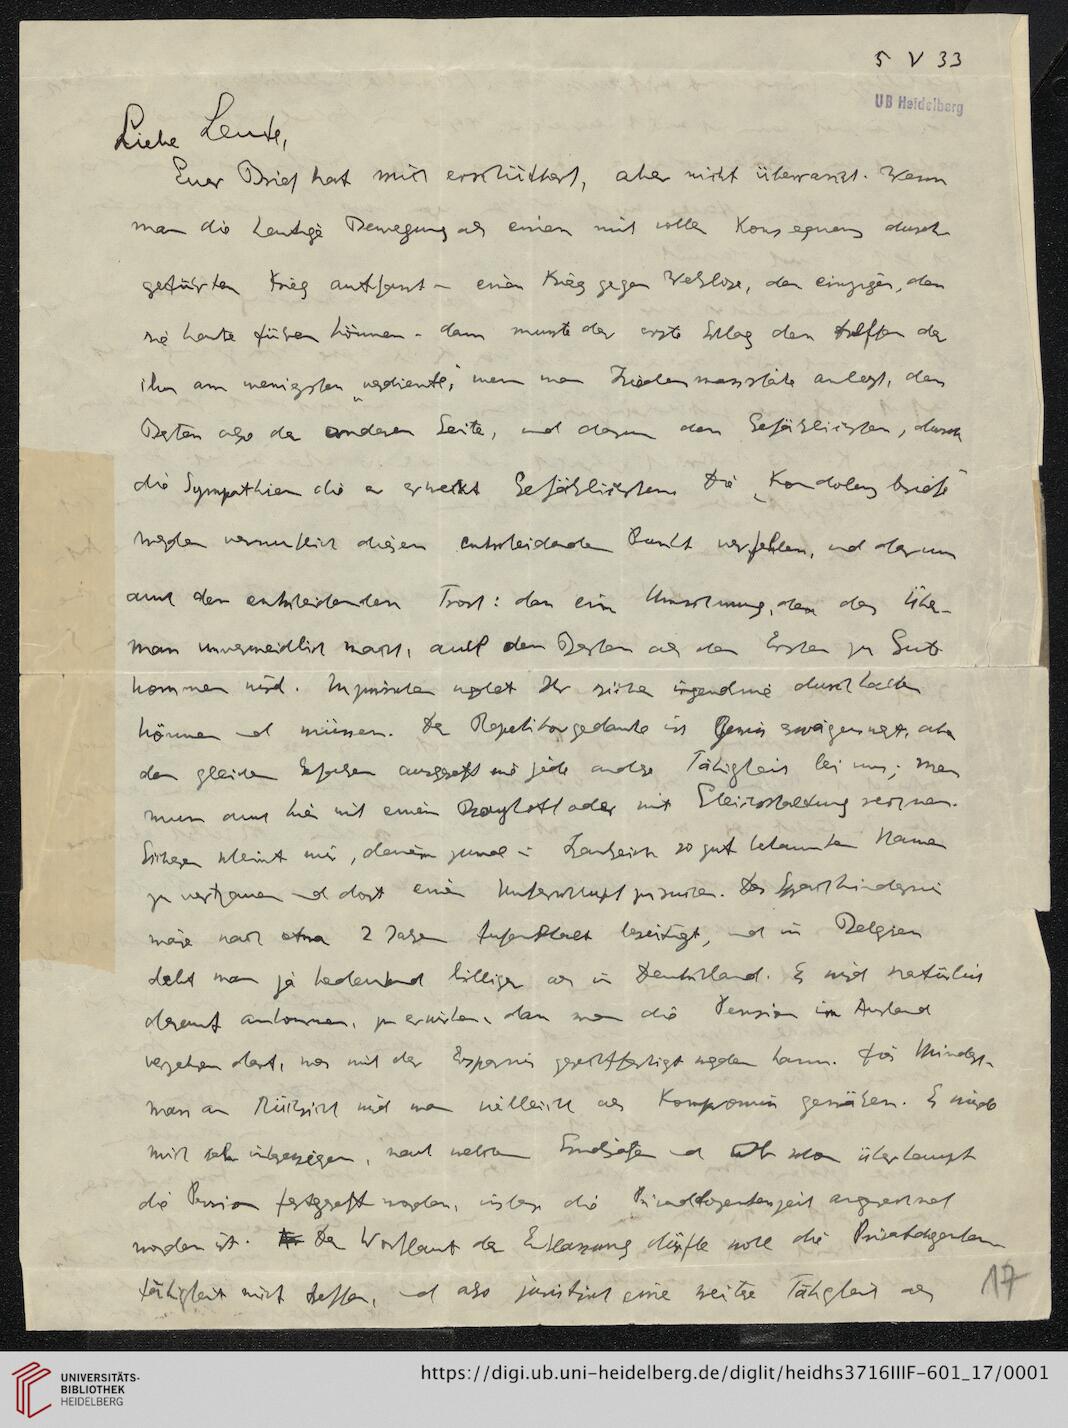 5 V 33
UB Heidelberg
Liebe Leute,
Euer Brief hat mich erschüttert, aber nicht überrascht. Wenn
man die heutige Bewegung als einen mit voller Konsequenz durch
geführten Krieg auffasst – einen Krieg gegen Wehrlose, den einzigen, den
sie heute führen können – dann musste der erste Schlag den treffen der
ihn am wenigsten „verdiente“, wenn man Friedensmassstäbe anlegt, den
Besten also der anderen Seite, und darum den Gefährlichsten, durch
die Sympathien die er erweckt Gefährlichsten. Die „Kondolenzbriefe“
werden vermutlich diesen entscheidenden Punkt verfehlen, und darum
auch den entscheidenden Trost: dass ein Umschwung, den das Über-
mass unvermeidlich macht, auch dem Besten als dem Ersten zu Gute
kommen wird. Inzwischen werdet Ihr sicher irgendwie durchhalten
können und müssen. Der Repetitorgedanke ist gewiss erwägenswert, aber
den gleichen Gefahren ausgesetzt wie jede andere Tätigkeit bei uns; man
muss auch hier mit einem Boykott oder mit Gleichschaltung rechnen.
Sicherer scheint mir, deinem gerade in Frankreich so gut bekannten Namen
zu vertrauen und dort einen Unterschlupf zu suchen. Das Sprachhindernis
wäre nach etwa 2 Jahren Aufenthalt beseitigt, und in Belgien
lebt man ja bedeutend billiger als in Deutschland. Es wird natürlich
darauf ankommen, zu erwirken, dass man die Pension im Ausland
verzehren darf, was mit der Ersparnis gerechtfertigt werden kann. Das Mindest-
mass an Rücksicht wird man vielleicht als Kompromiss gewähren. Es würde
mich sehr interessieren, nach welchen Grundsätzen und ob schon überhaupt
die Pension festgesetzt worden, insbes. die Privatdozentenzeit angerechnet
worden ist. Der Wortlaut der Entlassung dürfte wohl die Privatdozenten
tätigkeit nicht treffen, und also juristisch eine weitere Tätigkeit als
17
UNIVERSITÄTS-
BIBLIOTHEK
HEIDELBERG
https://digi.ub.uni-heidelberg.de/diglit/heidhs3716IIIF-601_17/0001